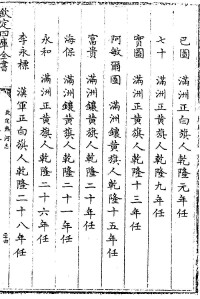 巴圖 滿洲正白旗人乾隆元年任
七十 滿洲正黃旗人乾隆九年任
寶圖 滿洲正黃旗人乾隆十三年任
阿敏爾圖 滿洲鑲黃旗人乾隆十五年任
富貴 滿洲鑲黃旗人乾隆二十年任
海保 滿洲鑲黃旗人乾隆二十一年任
永和 滿洲正黃旗人乾隆二十六年任
李永標 漢軍正白旗人乾隆二十八年任
欽定四庫全書 欽定熱河志